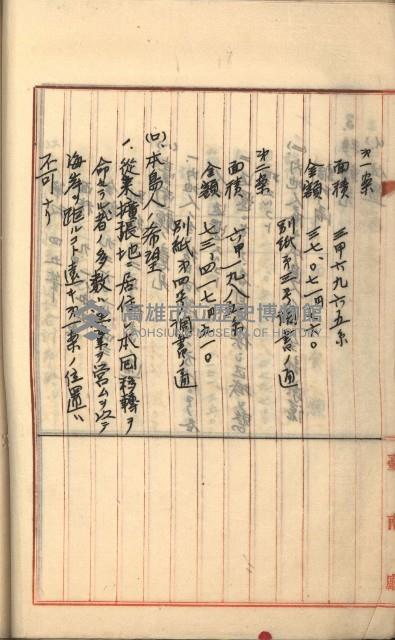 第一案
面積 三甲六九六五糸
金額 三七、〇七一円六〇
別紙第三号調書ノ通
第二案
面積 六甲一九八五糸
金額 七三、四一七円五一〇
別紙第四号調書ノ通
(ロ)、本島人ノ希望
一、従来擴張地ニ居住シ本回移轉ヲ
命セラル者ノ多数ハ漁業ヲ営ムヲ以テ
海岸ヲ距ルコト遠キ第一案ノ位置ハ
不可ナリ
臺南廳
高雄市立歷史博物館
KAOHSIUNG MUSEUM OF HISTORY